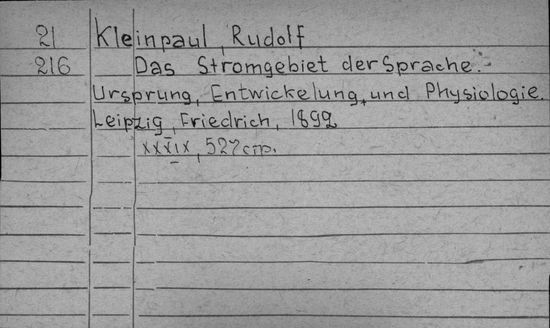 21 Kleinpaul, Rudolf
216 Das Stromgebiet der Sprache.-
Ursprung, Entwickelung, und Physiologie.
Leipzig, Friedrich, 1892
xxxix, 527cm.